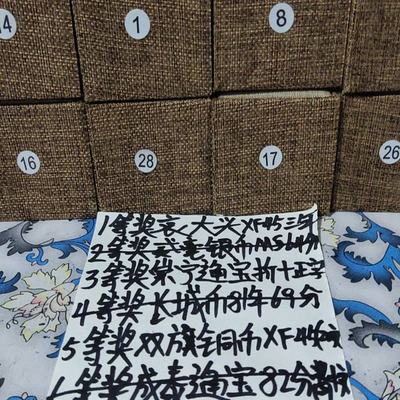 14 1 8
16 28 17 26
1等奖袁大头XF45三年
2等奖 银币MS64分
3等奖崇宁通宝折十正字
4等奖长城币81年69分
5等奖双旗铜币XF45
6等奖 通宝82分